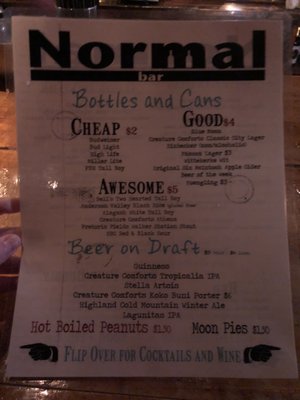 Normal
bar
Bottles and Cans
CHEAP $2
Budweiser
Bud Light
High Life
Miller Lite
PBR Tall Boy
GOOD $4
Blue Moon
Creature Comforts Classic City Lager
Einbecker (non/alcoholic)
Wittekerke Wit
Original Sin McIntosh Apple Cider
Beer of the Week
Yuengling $3
AWESOME $5
Bell's Two Hearted Tall Boy
Anderson Valley Black Rice
Allagash White Tall Boy
Creature Comforts Athena
Founders
SBG Red & Black Sour
Beer on Draft
Guinness
Creature Comforts Tropicalia IPA
Stella Artois
Creature Comforts Koko Buni Porter $6
Highland Cold Mountain Winter Ale
Lagunitas IPA
Hot Boiled Peanuts $1.50
Moon Pies $1.50
FLIP OVER FOR COCKTAILS AND WINE